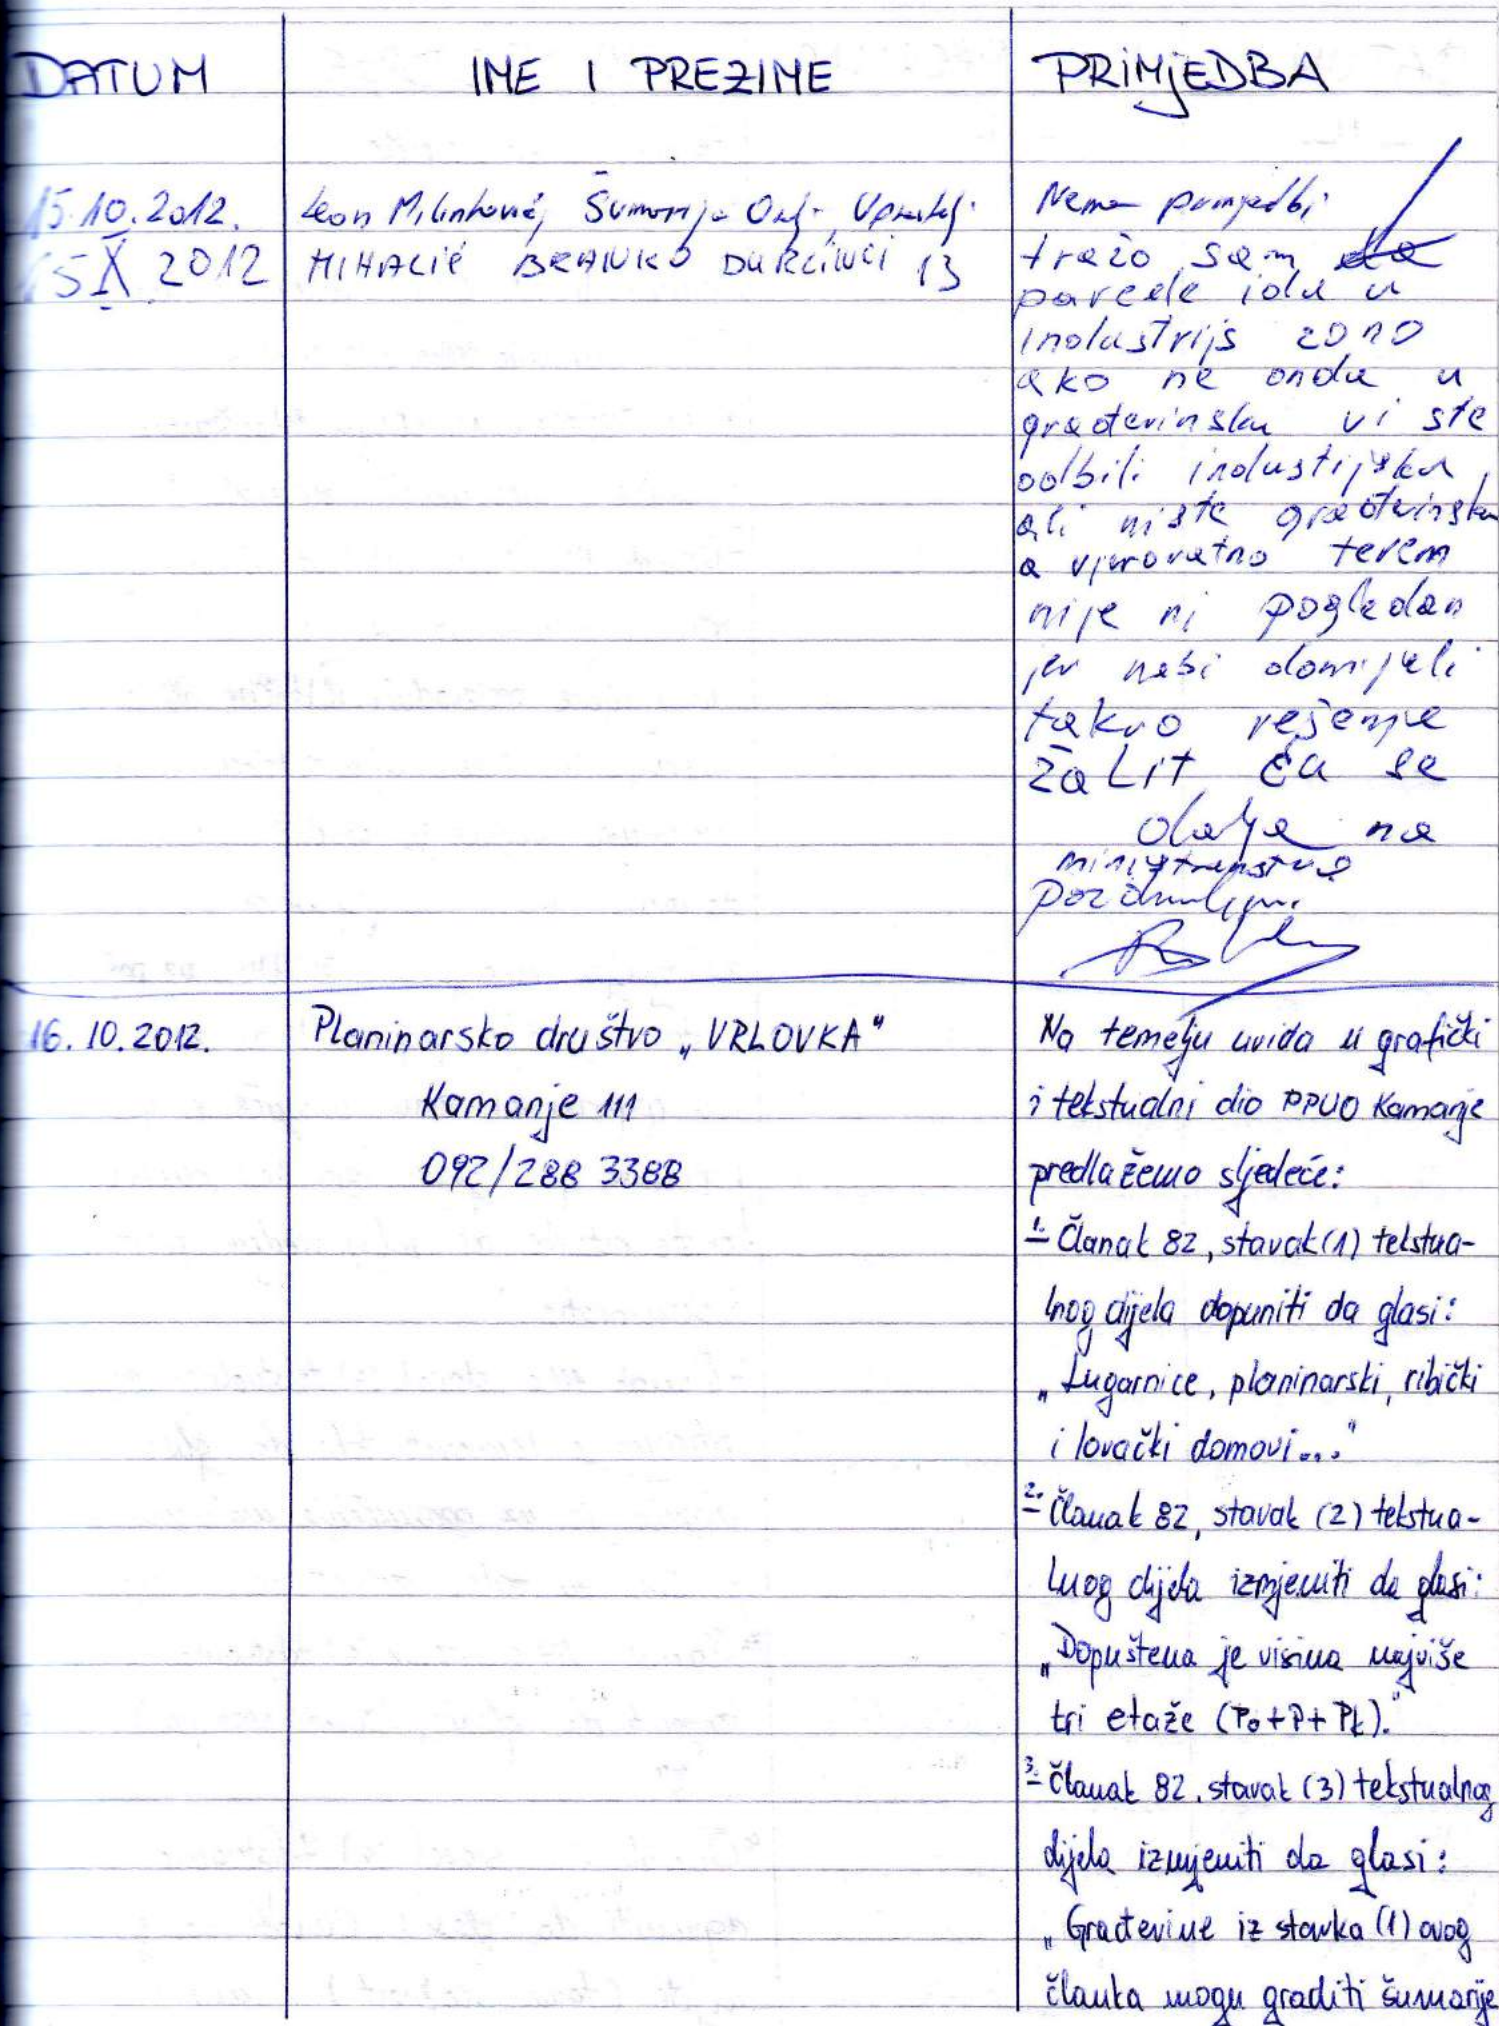 DATUM IME I PREZIME PRIMJEDBA
15.10.2012. Leon Milinković, Šumarija Ozalj, Upravitelj. Nema primjedbi
15 X 2012 MIHALIĆ BRANKO DURLINCI 13 tražo sam
parcele idu u
industrijs zono
ako ne onda u
građevinsku vi ste
odbili industijsku
ali niste građevinsku
a vjerovatno teren
nije ni pogledan
jer nebi donijeli
takvo rešenje
žalit ću se
dalje na
ministranstvo
16. 10. 2012. Planinarsko društvo „VRLOVKA“ Na temelju uvida u grafički
Kamanje 111 i tekstualni dio PPUO Kamanje
092/288 3388 predlažemo sljedeće:
1. Članak 82, stavak (1) tekstua-
lnog dijela dopuniti da glasi:
„Lugarnice, planinarski, ribički
i lovački domovi..."
2. Članak 82, stavak (2) tekstua-
lnog dijela izmjeniti da glasi:
„Dopuštena je visina najviše
tri etaže (Po+P+Pk)."
3. Članak 82. stavak (3) tekstualnog
dijela izmjeniti da glasi:
„Građevine iz stavka (1) ovog
članka mogu graditi šumarije